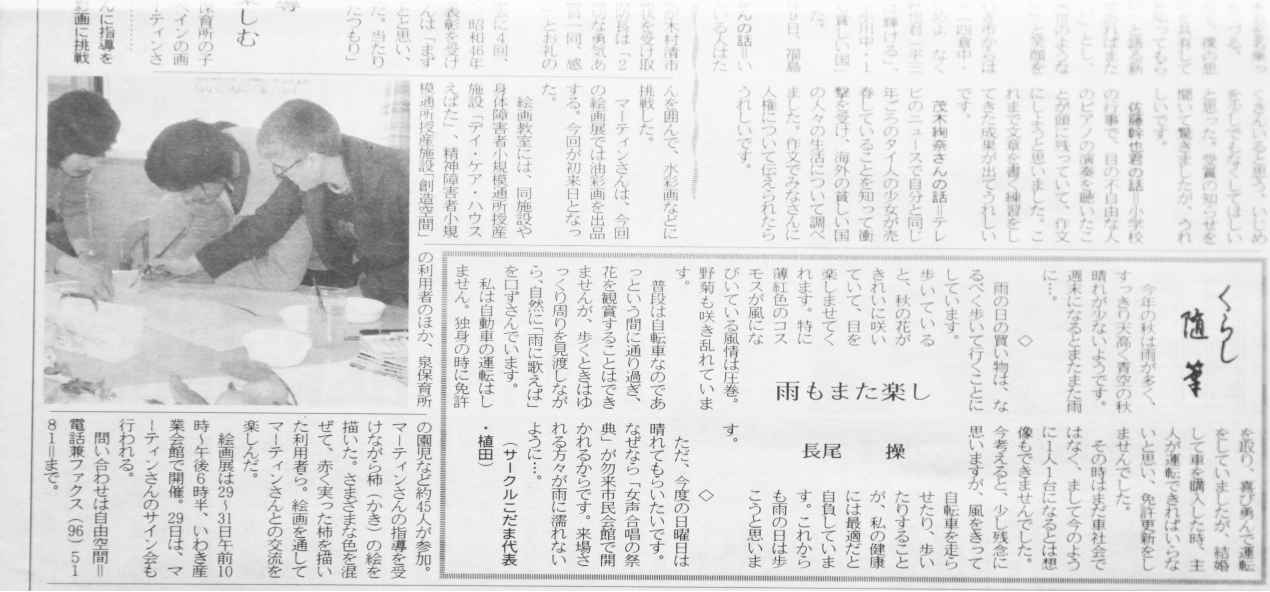 づる。
く、僕の思
を共有して
知ってもら
と語る新
あればまた
」とし、
と笑顔を
（四倉中・
めよ なく
は輝ける」、
小川中・１
て貧しい国」
た。
９日、福島
さんの話＝い
ている人はた
くさんいると思う。いじめ
を少しでもなくしてほしい
と思った。受賞の知らせを
聞いて驚きましたが、うれ
しいです。
佐藤幹也君の話＝小学校
の行事で、目の不自由な人
のピアノの演奏を聴いたこ
とが頭に残っていて、作文
にしようと思いました。こ
れまで文章を書く練習をし
てきた成果が出てうれしい
です。
茂木絢奈さんの話＝テレ
ビのニュースで自分と同じ
年ごろのタイ人の少女が売
春していることを知って衝
撃を受け、海外の貧しい国
の人々の生活について調べ
ました。作文でみなさんに
人権について伝えられたら
うれしいです。
木村清市
状を受け取
部長は「２
切な勇気あ
賞一同、感
とお礼の
に４回、
昭和46年
表彰を受け
んは「まず
と思い、
だ。当たり
たつもり」
くらし
随筆
雨もまた楽し
長尾 操
今年の秋は雨が多く、
すっきり天高く青空の秋
晴れが少ないようです。
週末になるとまたまた雨
に…。
◇
雨の日の買い物は、な
るべく歩いて行くことに
しています。
歩いている
と、秋の花が
きれいに咲い
ていて、目を
楽しませてく
れます。特に
薄紅色のコス
モスが風にな
びいている風情は圧巻。
野菊も咲き乱れていま
す。
普段は自転車なのであ
っという間に通り過ぎ、
花を観賞することはでき
ませんが、歩くときはゆ
っくり周りを見渡しなが
ら、自然に「雨に歌えば」
を口ずさんでいます。
私は自動車の運転はし
ません。独身の時に免許
を取り、喜び勇んで運転
をしていましたが、結婚
して車を購入した時、主
人が運転できればいらな
いと思い、免許更新をし
ませんでした。
その時はまだ車社会で
はなく、まして今のよう
に１人１台になるとは想
像もできませんでした。
今考えると、少し残念に
思いますが、風をきって
自転車を走ら
せたり、歩い
たりすること
が、私の健康
には最適だと
自負していま
す。これから
も雨の日は歩
こうと思いま
す。
◇
ただ、今度の日曜日は
晴れてもらいたいです。
なぜなら「女声合唱の祭
典」が勿来市民会館で開
かれるからです。来場さ
れる方々が雨に濡れない
ように…。
（サークルこだま代表
・植田）
楽しむ
んに指導を
彩画に挑戦
保育所の子
ペインの画
ーティンさ
んを囲んで、水彩画などに
挑戦した。
マーティンさんは、今回
の絵画展では油彩画を出品
する。今回が初来日となっ
た。
絵画教室には、同施設や
身体障害者小規模通所授産
施設「デイ・ケア・ハウス
えばた」、精神障害者小規
模通所授産施設「創造空間」
の利用者のほか、泉保育所
の園児など約45人が参加。
マーティンさんの指導を受
けながら柿（かき）の絵を
描いた。さまざまな色を混
ぜて、赤く実った柿を描い
た利用者ら。絵画を通して
マーティンさんとの交流を
楽しんだ。
絵画展は29～31日午前10
時～午後６時半、いわき産
業会館で開催。29日は、マ
ーティンさんのサイン会も
行われる。
問い合わせは自由空間＝
電話兼ファクス（96）５１
８１＝まで。